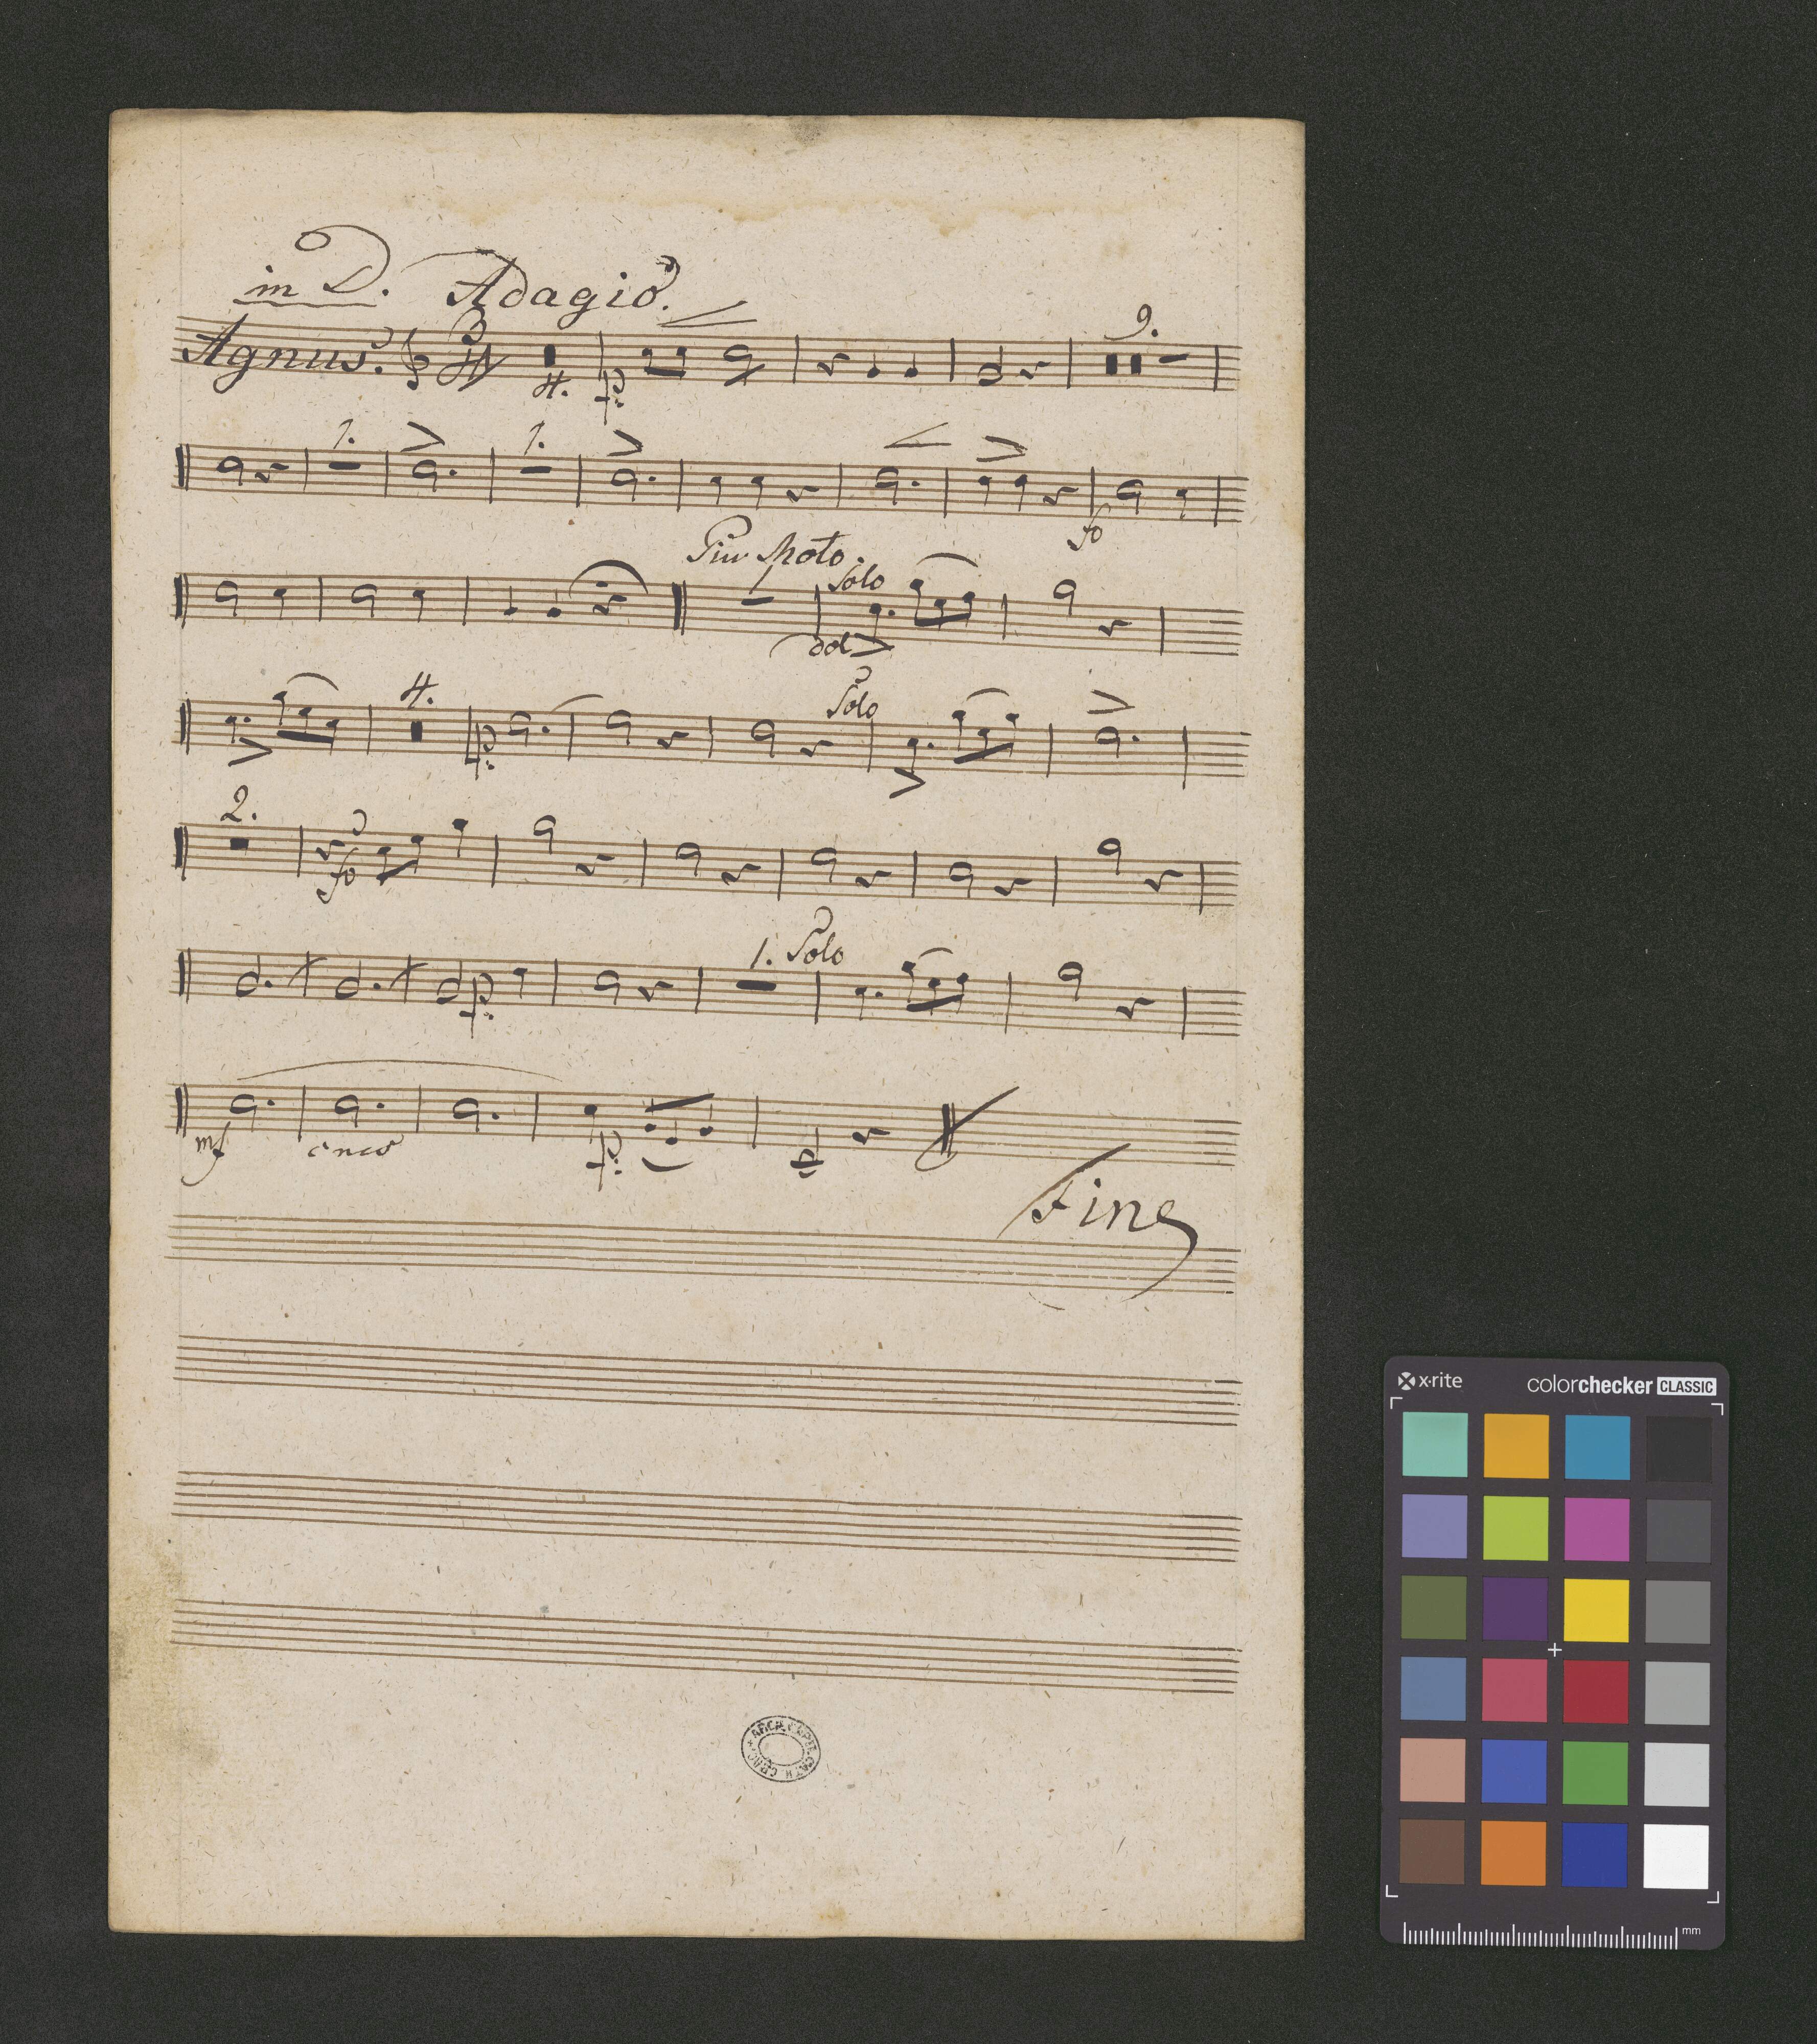 in D. Adagio.
Agnus. 3/4 4. p: 9.
1. 1. fo
Piu Moto.
1 Solo
dol
4. p: Solo
2.
fo
p: 1. Solo
mf p:
Fine
x·rite colorchecker CLASSIC
mm